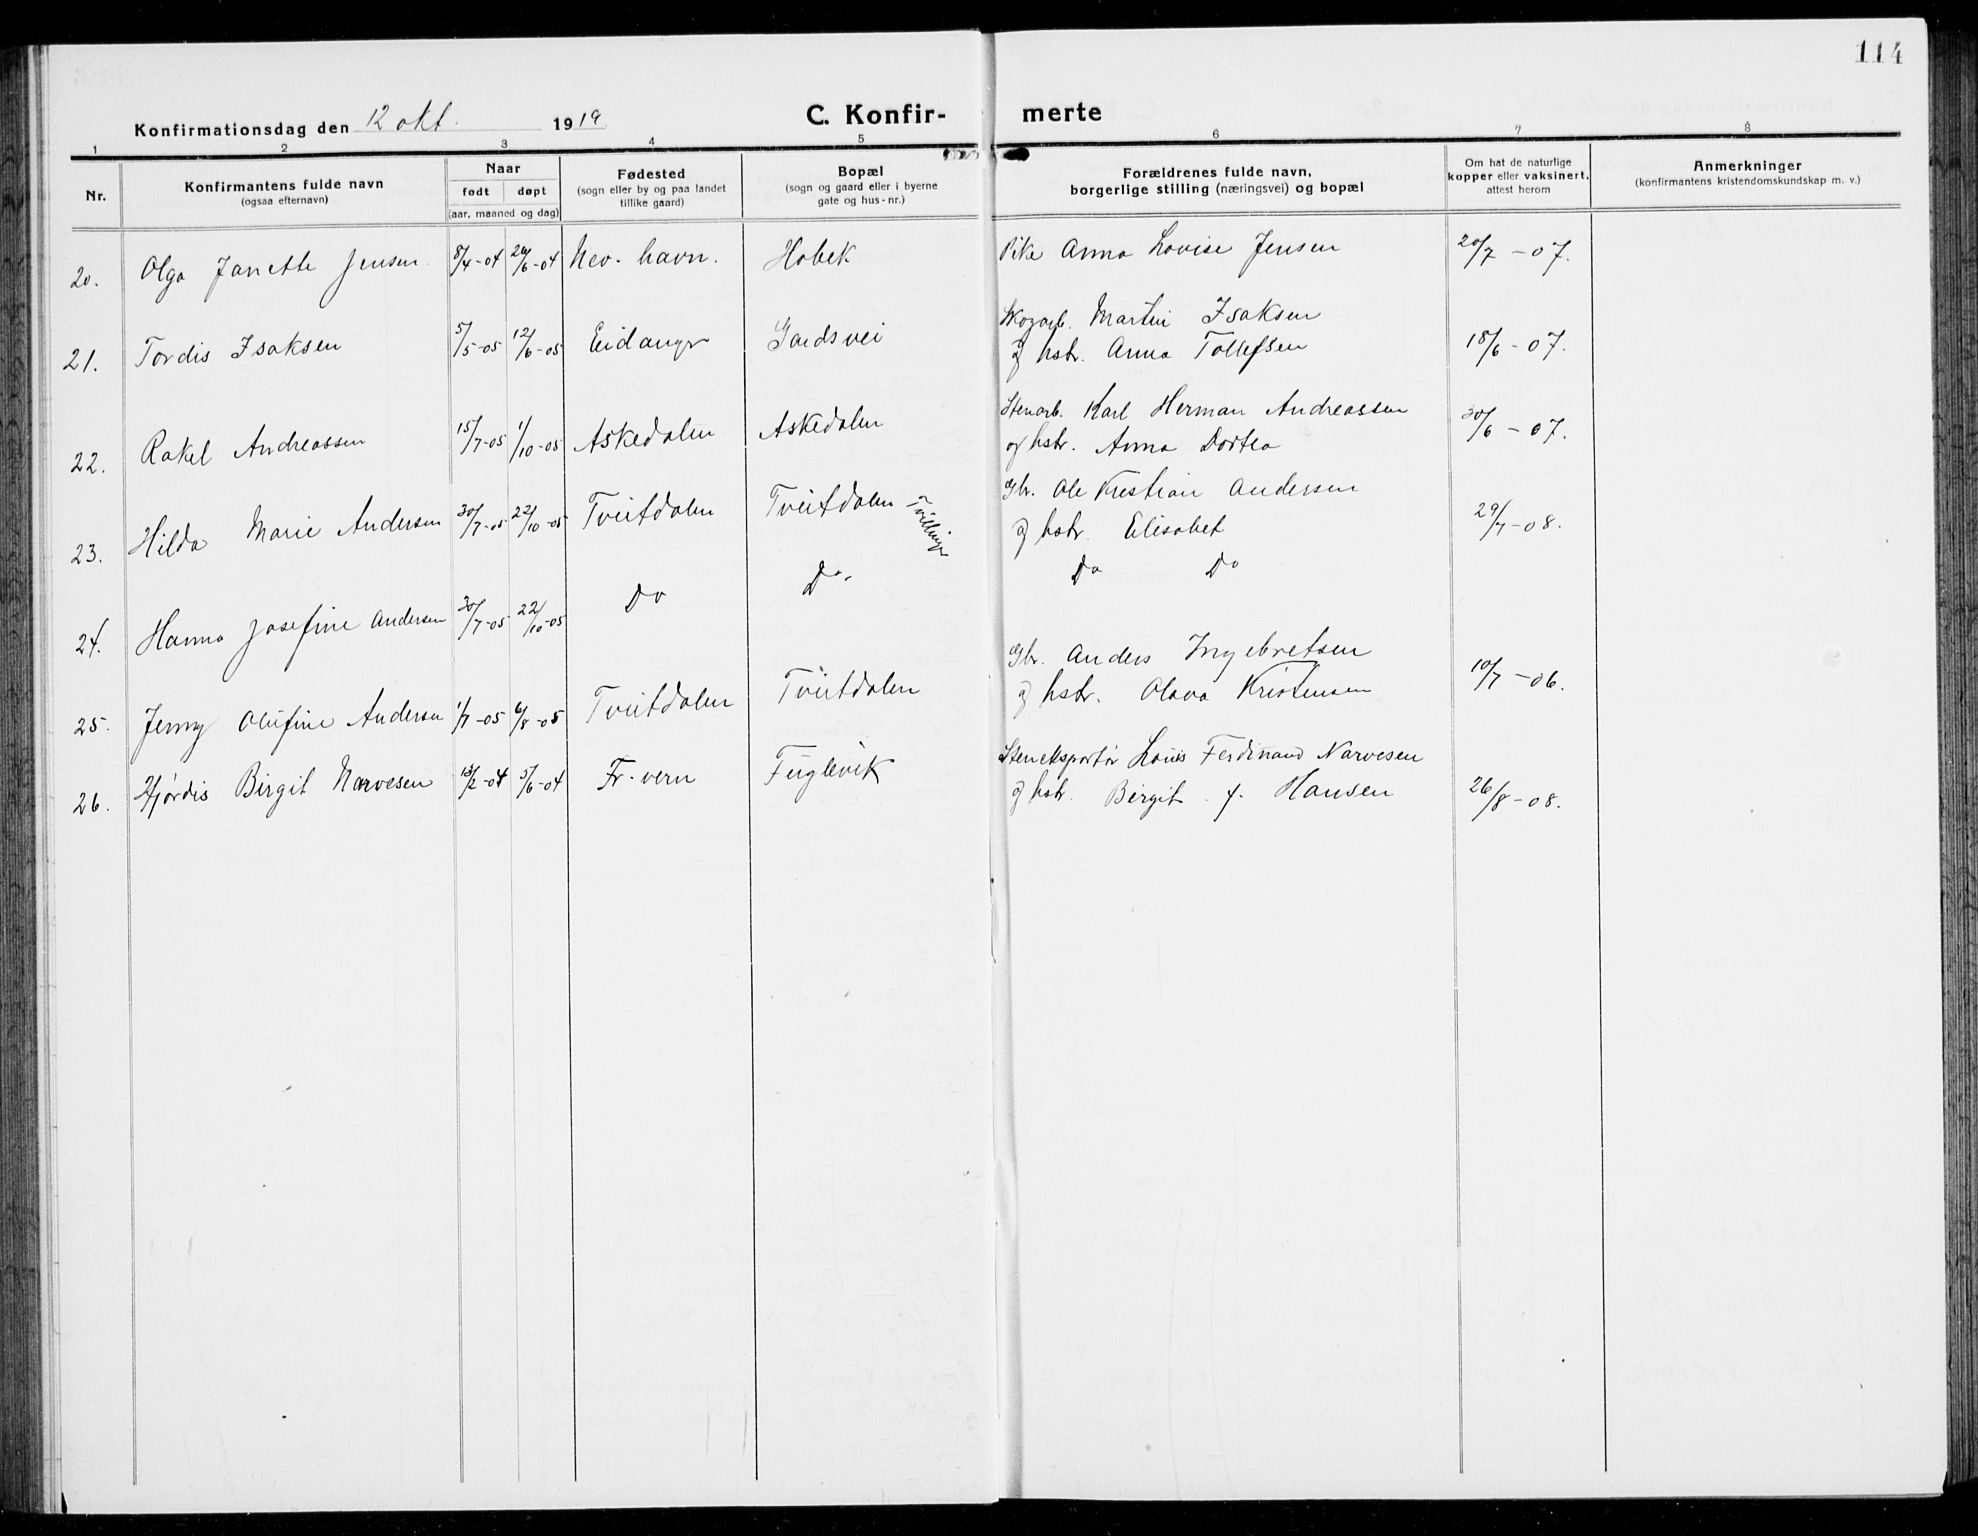 114
Konfirmationsdag den 12 okt. 1919 C. Konfirmerte
1 2 3 4 5 6 7 8
Nr. Konfirmantens fulde navn (ogsaa efternavn) Naar født døpt (aar, maaned og dag) Fødested (sogn eller by og paa landet tillike gaard) Bopæl (sogn og gaard eller i byerne gate og hus-nr.) Forældrenes fulde navn, borgerlige stilling (næringsvei) og bopæl Om hat de naturlige kopper eller vaksinert, attest herom Anmerkninger (konfirmantens kristendomskundskap m. v.)
20. Olga Janette Jensen 8/4-04 26/6-04 Nev-havn. Hobek Pike Anna Lovise Jensen 20/7-07.
21. Tordis Isaksen 5/5-05 12/6-05 Eidanger Gaardsvei Skogarb. Martin Isaksen
og hstr. Anna Tollefsen 18/6-07.
22. Rakel Andreassen 15/7-05 1/10-05 Askedalen Askedalen Stenarb. Karl Herman Andreassen
og hstr. Anna Dortea 30/6-07.
23. Hilda Marie Andersen 30/7-05 22/10-05 Tveitdalen Tveitdalen Tvillinger Gbr. Ole Kristian Andersen
og hstr. Elisabet 29/7-08.
24. Hanna Josefine Andersen 30/7-05 22/10-05 Do Do. Do Do
25. Jenny Olufine Andersen 1/7-05 6/8-05 Tveitdalen Tveitdalen Gbr. Anders Ingebretsen
og hstr. Olava Kristensen 10/7-06.
26. Hjørdis Birgit Narvesen 5/6-04 Fr-vern Fuglevik Steneksportør Louis Ferdinand Narvesen
og hstr. Birgit f. Hansen 26/8-08.